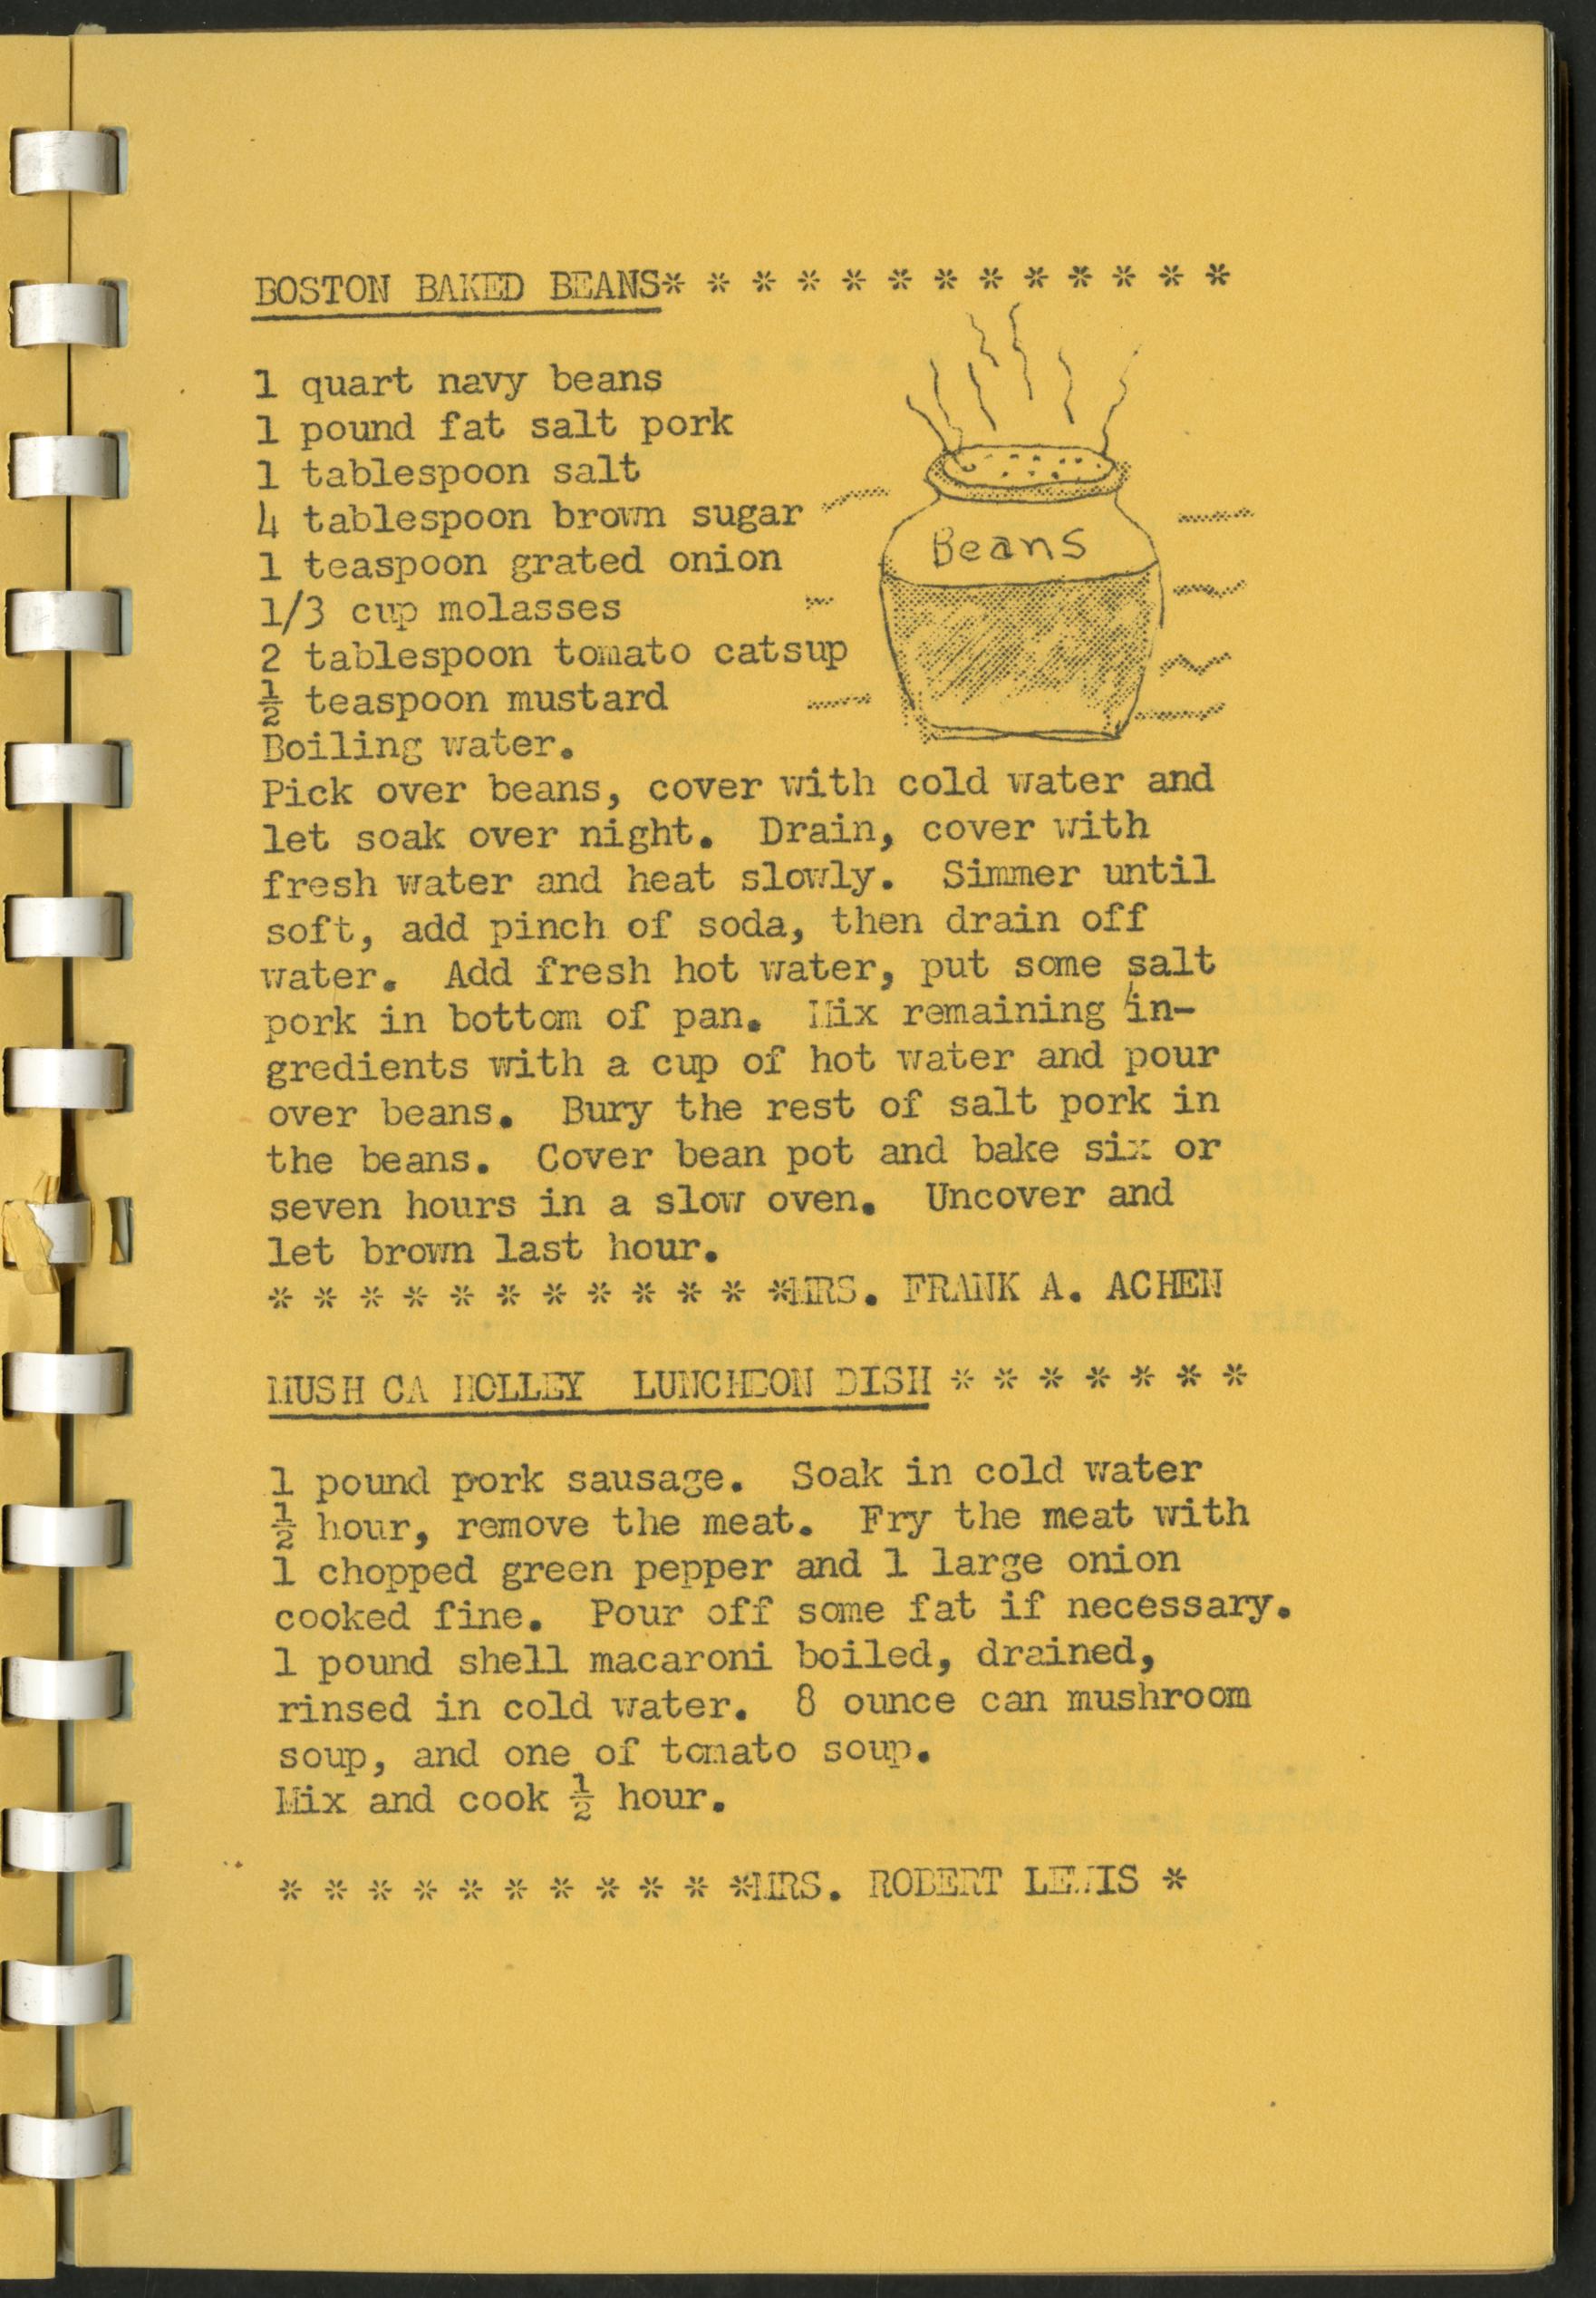 BOSTON BAKED BEANS* * * * * * * * * * * * *
1 quart navy beans
1 pound fat salt pork
1 tablespoon salt
4 tablespoon brown sugar
1 teaspoon grated onion
1/3 cup molasses
2 tablespoon tomato catsup
½ teaspoon mustard
Boiling water.
Beans
Pick over beans, cover with cold water and
let soak over night. Drain, cover with
fresh water and heat slowly. Simmer until
soft, add pinch of soda, then drain off
water. Add fresh hot water, put some salt
pork in bottom of pan. Mix remaining in-
gredients with a cup of hot water and pour
over beans. Bury the rest of salt pork in
the beans. Cover bean pot and bake six or
seven hours in a slow oven. Uncover and
let brown last hour.
* * * * * * * * * * * *MRS. FRANK A. ACHEN
MUSH CA HOLLEY LUNCHEON DISH * * * * * * *
1 pound pork sausage. Soak in cold water
½ hour, remove the meat. Fry the meat with
1 chopped green pepper and 1 large onion
cooked fine. Pour off some fat if necessary.
1 pound shell macaroni boiled, drained,
rinsed in cold water. 8 ounce can mushroom
soup, and one of tomato soup.
Mix and cook ½ hour.
* * * * * * * * * * *MRS. ROBERT LEWIS *